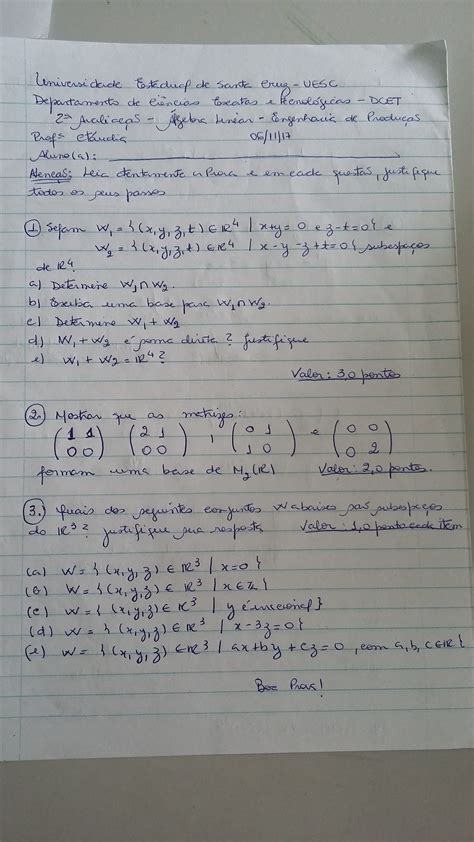 Universidade Estadual de Santa Cruz - UESC
Departamento de Ciências Exatas e Tecnológicas - DCET
2ª Avaliação - Álgebra Linear - Engenharia de Produção
Profª Cláudia 06/11/17
Aluno(a):
Atenção: Leia atentamente a Prova e em cada questão, justifique
todos os seus passos
1) Sejam W₁ = {(x,y,z,t) ∈ ℝ⁴ | x+y=0 e z-t=0} e
W₂ = {(x,y,z,t) ∈ ℝ⁴ | x-y-z+t=0} subespaços
de ℝ⁴.
a) Determine W₁∩W₂.
b) Exiba uma base para W₁∩W₂.
c) Determine W₁ + W₂
d) W₁ + W₂ é soma direta? Justifique
e) W₁ + W₂ = ℝ⁴?
Valor: 3,0 pontos
2. Mostrar que as matrizes:
(1 1) (2 1) , (0 1) e (0 0)
(0 0) (0 0) (1 0) (0 2)
formam uma base de M₂(ℝ) Valor: 2,0 pontos.
3. Quais dos seguintes conjuntos W abaixo são subespaços
do ℝ³? Justifique sua resposta Valor: 1,0 ponto cada item
(a) W = {(x,y,z) ∈ ℝ³ | x=0}
(b) W = {(x,y,z) ∈ ℝ³ | x∈ℤ}
(c) W = {(x,y,z) ∈ ℝ³ | y é irracional}
(d) W = {(x,y,z) ∈ ℝ³ | x-3z=0}
(e) W = {(x,y,z) ∈ ℝ³ | ax+by+cz=0, com a,b,c∈ℝ}
Boa Prova!